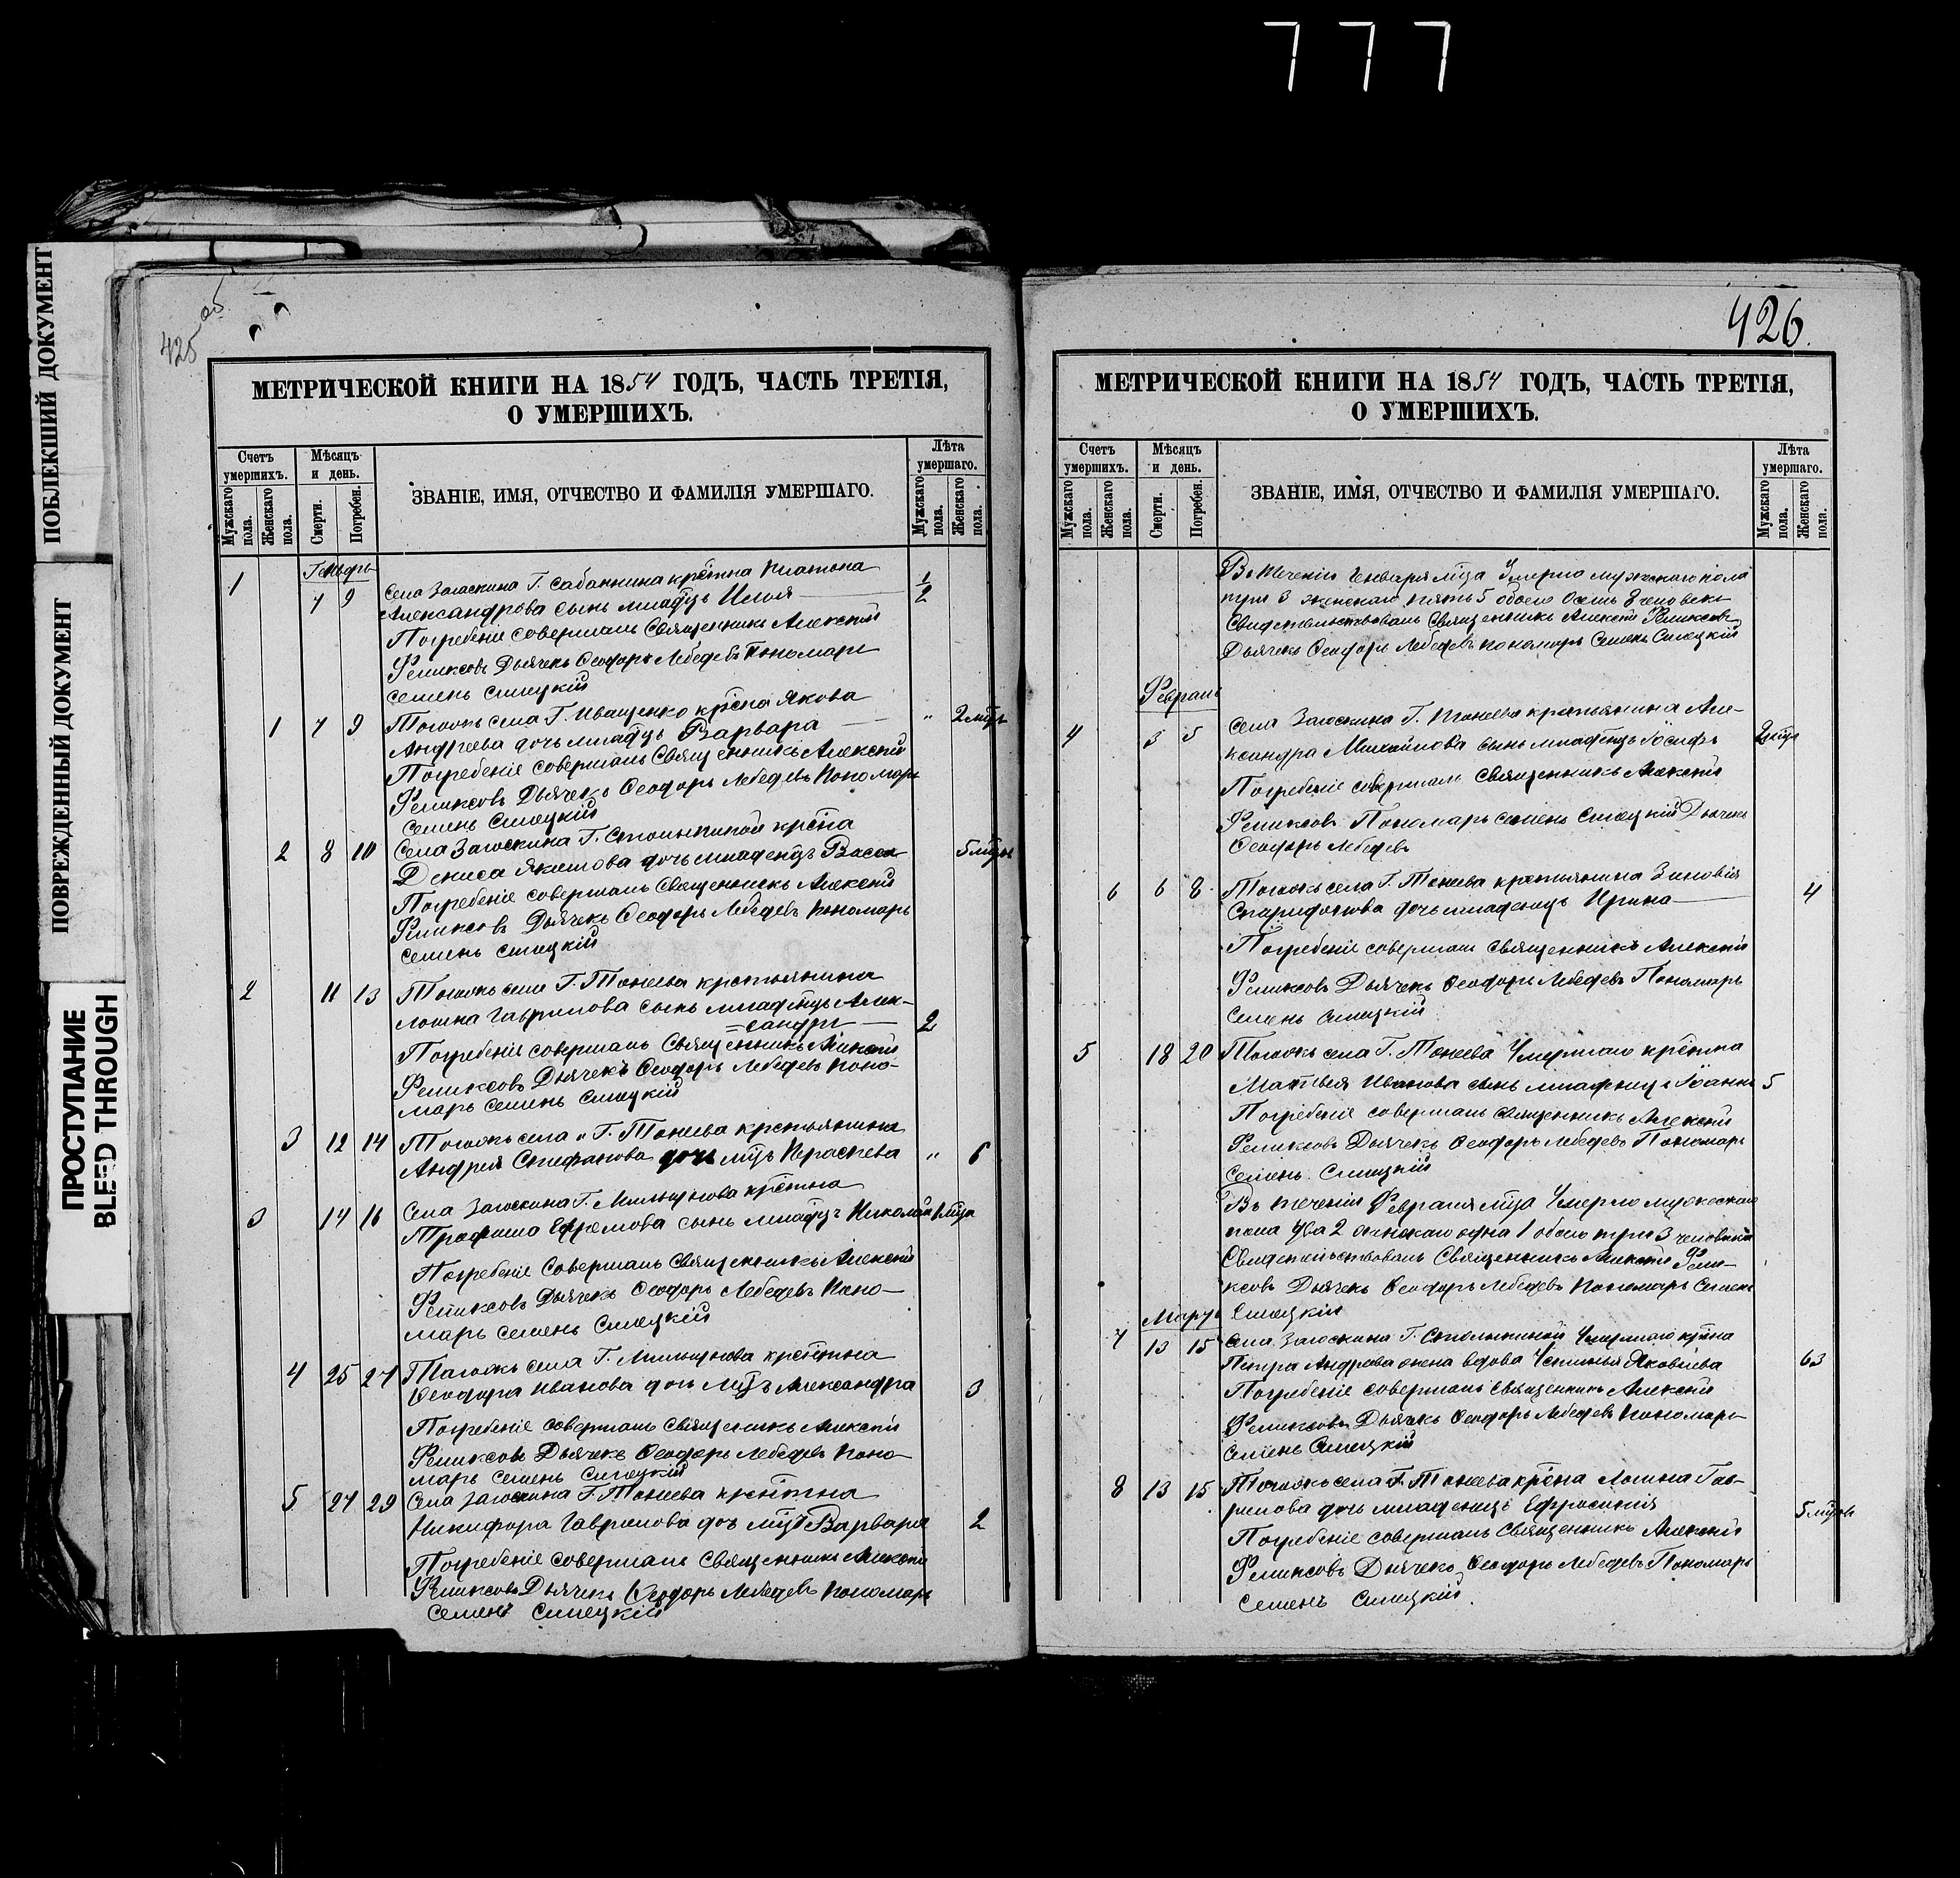 777
ПОБЛЕКШИЙ ДОКУМЕНТ
ПОВРЕЖДЕННЫЙ ДОКУМЕНТ
ПРОСТУПАНИЕ
BLEED THROUGH
425 об
МЕТРИЧЕСКОЙ КНИГИ НА 1854 ГОДЪ, ЧАСТЬ ТРЕТІЯ,
О УМЕРШИХЪ.
Счетъ умершихъ.
Мѣсяцъ и день.
ЗВАНІЕ, ИМЯ, ОТЧЕСТВО И ФАМИЛІЯ УМЕРШАГО.
Лѣта умершаго.
Мужскаго пола.
Женскаго пола.
Смерти.
Погребен.
Мужскаго пола.
Женскаго пола.
Генварь
1 7 9 Села Загоскина Г. Сабанкина крестна Платона 1/2
Александрова сынъ младцъ Илья
Погребеніе совершалъ Священникъ Алексѣй
Феликсовъ Дьячекъ Ѳеодоръ Лебедевъ Пономарь
Семенъ Силецкій
1 7 9 Тогожъ села Г. Иващенко крестна Якова " 2 мцъ
Андреева дочь младцъ Варвара
Погребеніе совершалъ Священникъ Алексѣй
Феликсовъ Дьячекъ Ѳеодоръ Лебедевъ Пономарь
Семенъ Силецкій
2 8 10 Села Загоскина Г. Столыпиной крестна 5 мцъ
Дениса Якимова дочь младенцъ Васса
Погребеніе совершалъ Священникъ Алексѣй
Феликсовъ Дьячекъ Ѳеодоръ Лебедевъ Пономарь
Семенъ Силецкій
2 11 13 Тогожъ села Г. Тонеева крестьянина
Логина Гаврилова сынъ младенцъ Алек-
=сандръ 2
Погребеніе совершалъ Священникъ Алексѣй
Феликсовъ Дьячекъ Ѳеодоръ Лебедевъ Поно-
марь Семенъ Силецкій
3 12 14 Тогожъ села " Г. Тонеева крестьянина
Андрея Стефанова дочь мцъ Параскева " 6
3 14 16 Села Загоскина Г. Мильгунова крестна
Трофима Ефремова сынъ младцъ Николай 1 мца
Погребеніе Совершалъ Священникъ Алексѣй
Феликсовъ Дьячекъ Ѳеодоръ Лебедевъ Поно-
марь Семенъ Силецкій
4 25 27 Тогожъ села Г. Мильгунова крестна
Ѳеодора Иванова дочь мцъ Александра 3
Погребеніе совершалъ Священникъ Алексѣй
Феликсовъ Дьячекъ Ѳеодоръ Лебедевъ Поно-
марь Семенъ Силецкій
5 27 29 Села Загоскина Г. Тонеева крестна
Никифора Гаврилова дочь мцъ Варвара 2
Погребеніе совершалъ Священникъ Алексѣй
Феликсовъ Дьячекъ Ѳеодоръ Лебедевъ Пономарь
Семенъ Силецкій
426.
МЕТРИЧЕСКОЙ КНИГИ НА 1854 ГОДЪ, ЧАСТЬ ТРЕТІЯ,
О УМЕРШИХЪ.
Счетъ умершихъ.
Мѣсяцъ и день.
ЗВАНІЕ, ИМЯ, ОТЧЕСТВО И ФАМИЛІЯ УМЕРШАГО.
Лѣта умершаго.
Мужскаго пола.
Женскаго пола.
Смерти.
Погребен.
Мужскаго пола.
Женскаго пола.
Въ теченіи Генваря мца Умерло мужскаго пола
три 3 женскаго пять 5 обоего Осемь 8 человекъ
Свидетельствовалъ Священникъ Алексѣй Феликсовъ
Дьячекъ Ѳеодоръ Лебедевъ пономарь Семенъ Силецкій
Февраль
4 3 5 Села Загоскина Г. Тонеева крестьянина Але-
ксандра Михайлова сынъ младенцъ Іосифъ 2 мца
Погребеніе совершалъ Священникъ Алексѣй
Феликсовъ Пономарь Семенъ Силецкій Дьячекъ
Ѳеодоръ Лебедевъ
6 6 8 Тогожъ села Г. Тонеева крестьянина Зиновія
Спиридонова дочь младенецъ Ирина 4
Погребеніе совершалъ Священникъ Алексѣй
Феликсовъ Дьячекъ Ѳеодоръ Лебедевъ Пономарь
Семенъ Силецкій
5 18 20 Тогожъ села Г. Тонеева Умершаго крестна
Матвея Иванова сынъ младенецъ Іоаннъ 5
Погребеніе совершалъ Священникъ Алексѣй
Феликсовъ Дьячекъ Ѳеодоръ Лебедевъ Пономарь
Семенъ Силецкій
Въ теченіи Февраля мца Умерло мужескаго
пола два 2 женскаго одна 1 обоего три 3 человѣка
Свидетельствовалъ Священникъ Алексѣй Фели-
ксовъ Дьячекъ Ѳеодоръ Лебедевъ Пономарь Семенъ
Силецкій
Мартъ
7 13 15 Села Загоскина Г. Столыпиной Умершаго крстна
Петра Андреева жена вдова Яковлева 63
Погребеніе совершалъ Священникъ Алексѣй
Феликсовъ Дьячекъ Ѳеодоръ Лебедевъ Пономарь
Семенъ Силецкій
8 13 15 Тогожъ села Г. Тонеева крстна Логина Гав-
рилова дочь младенецъ Ефросинія 5 мцъ
Погребеніе совершалъ Священникъ Алексѣй
Феликсовъ Дьячекъ Ѳеодоръ Лебедевъ Пономарь
Семенъ Силецкій.